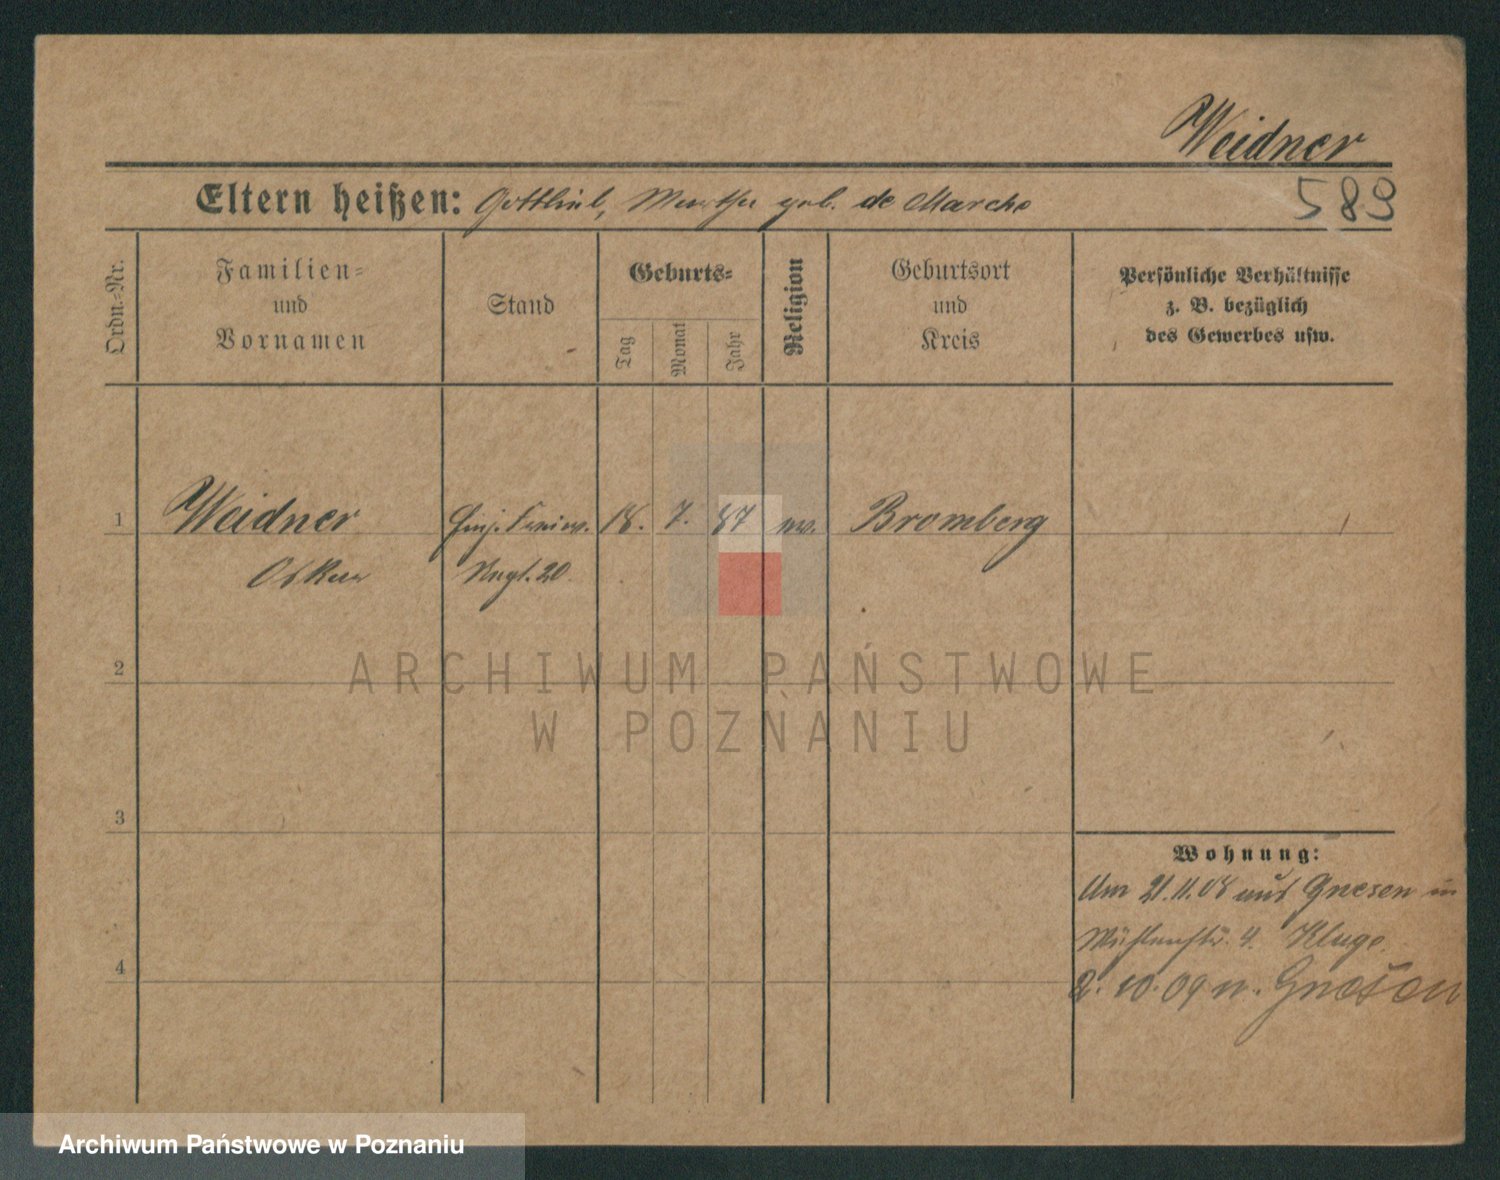 Weidner
Eltern heißen: Gottlieb, Martha geb. de Marche
589
Ordn.-Nr.
Familien-
und
Vornamen
Stand
Geburts-
Tag
Monat
Jahr
Religion
Geburtsort
und
Kreis
Persönliche Verhältnisse
z. B. bezüglich
des Gewerbes usw.
1 Weidner Einj. Freiw. 18. 7. 87 ev. Bromberg
Oskar Regt. 20
2
3
4
Wohnung:
Am 21.11.08 aus Gnesen in
Mühlenstr. 4. Kluge.
2. 10. 09 n. Gnesen
ARCHIWUM PAŃSTWOWE
W POZNANIU
Archiwum Państwowe w Poznaniu